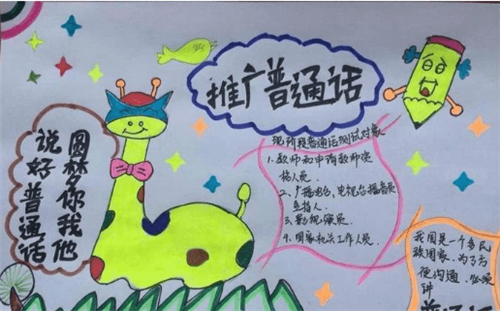 推广普通话
说好普通话
圆梦你我他
现阶段普通话测试对象
1、教师和申请教师资
格人员.
2、广播电台、电视台播音员
主持人.
3、影视演员.
4、国家机关工作人员.
我国是一个多民
族国家.为了方
便沟通.
讲
普通话